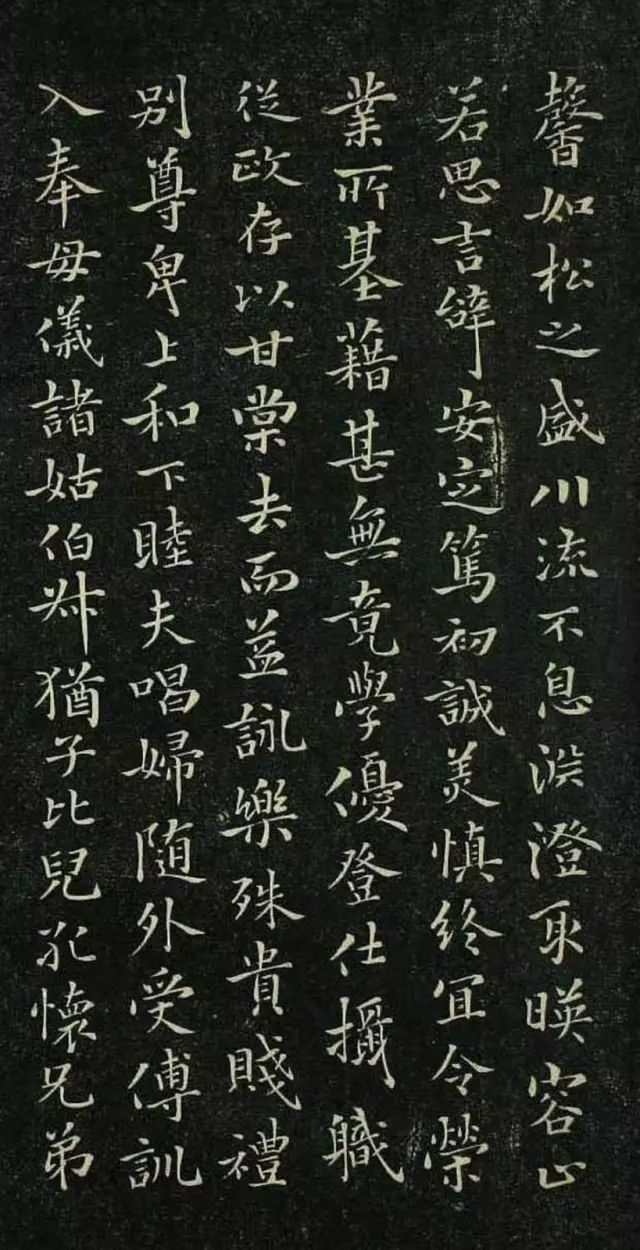 馨如松之盛川流不息淵澄取暎容止
若思言辭安定篤初誠美慎終宜令榮
業所基藉甚無竟學優登仕攝職
從政存以甘棠去而益詠樂殊貴賤禮
別尊卑上和下睦夫唱婦隨外受傅訓
入奉母儀諸姑伯叔猶子比兒孔懷兄弟